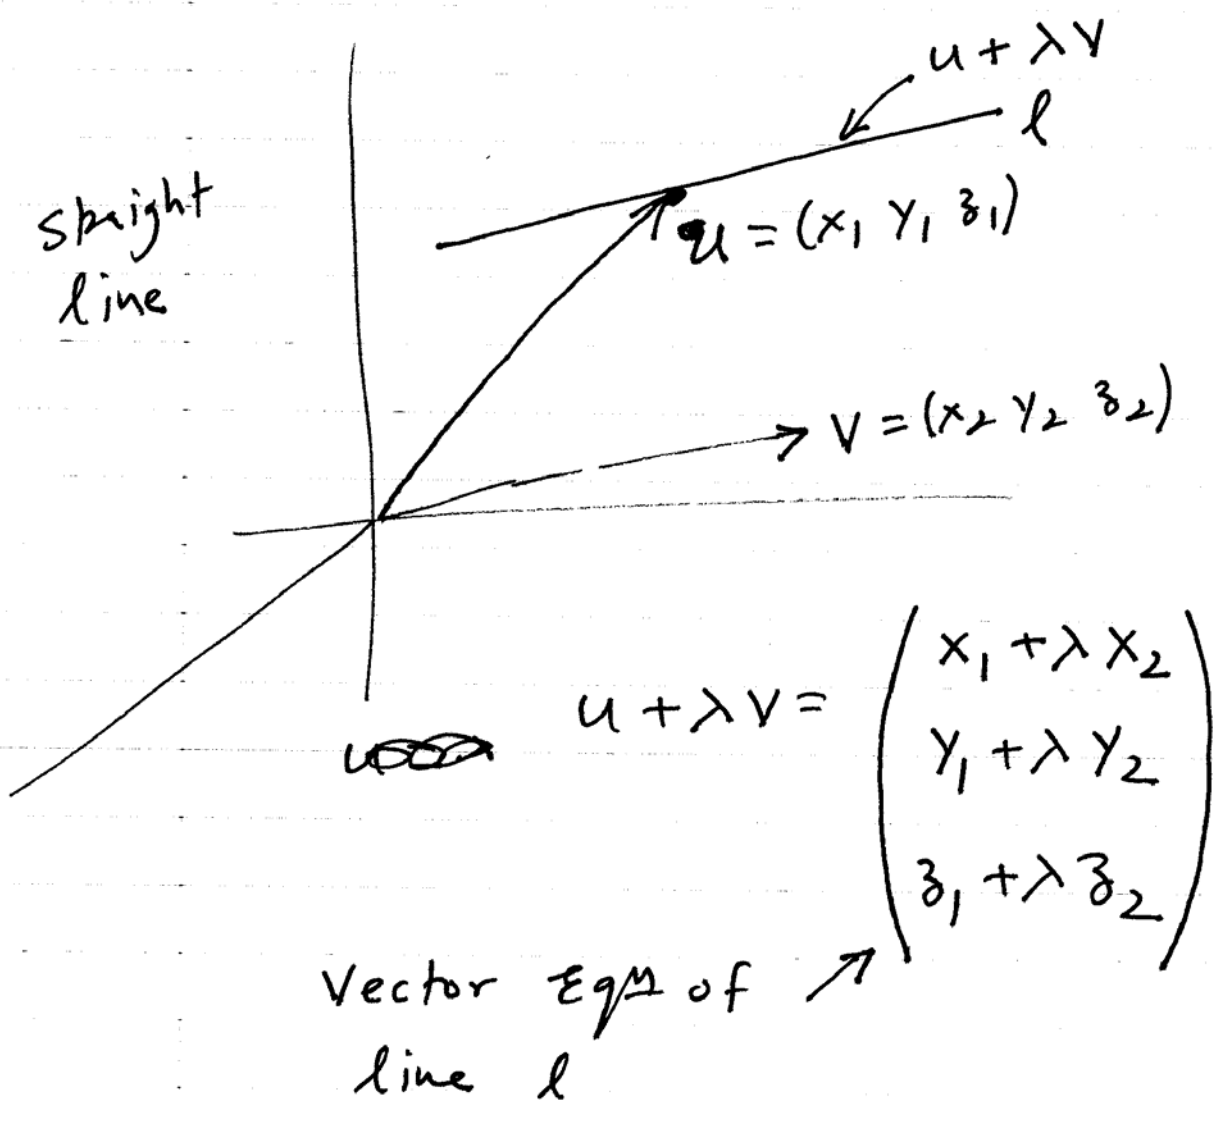 u + λ v
l
straight
line
u = (x₁ y₁ z₁)
v = (x₂ y₂ z₂)
u + λ v = ( x₁ + λ x₂
y₁ + λ y₂
z₁ + λ z₂ )
Vector Eqn of
line l